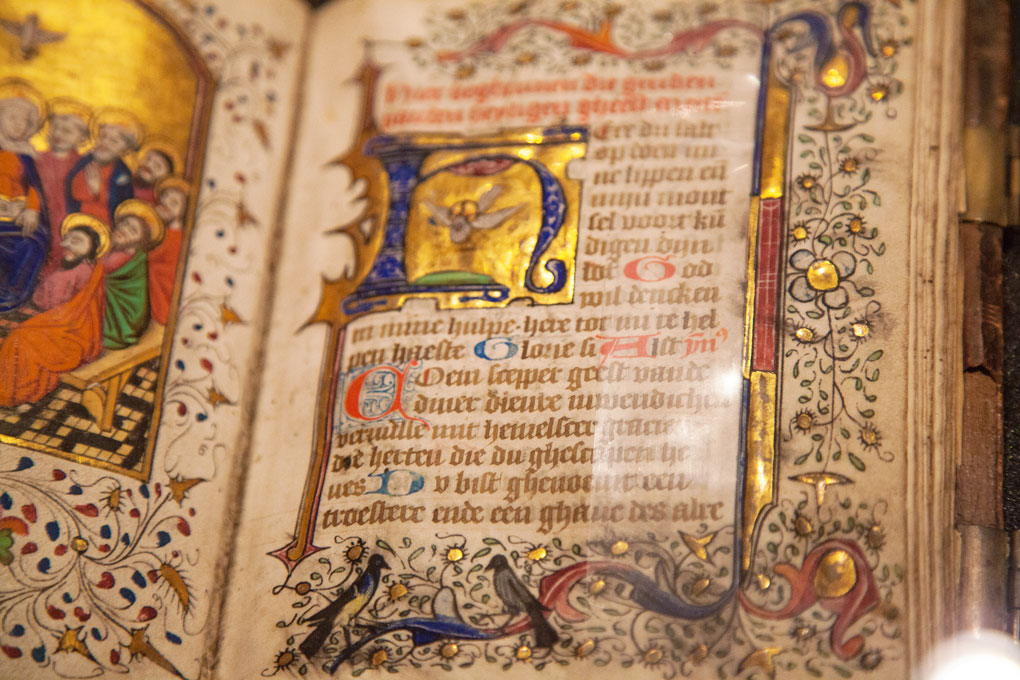 Hier beghinnen die
vanden heyligen gheest
HEre du salt
op doen mi
ne lippen eñ
mijn mont
sel voort kū
digen dijn
lof God
wil dencken
in mine hulpe. here tot mi te hel
pen haeste Glorie si Alst ymꝰ
COem scepper geest vande
diuer dienre inwendichen
veruulle mit hemelscer gracie
die herten die du ghescapen he
ues Du bist ghenoemt een
troestere ende een ghaue des alre